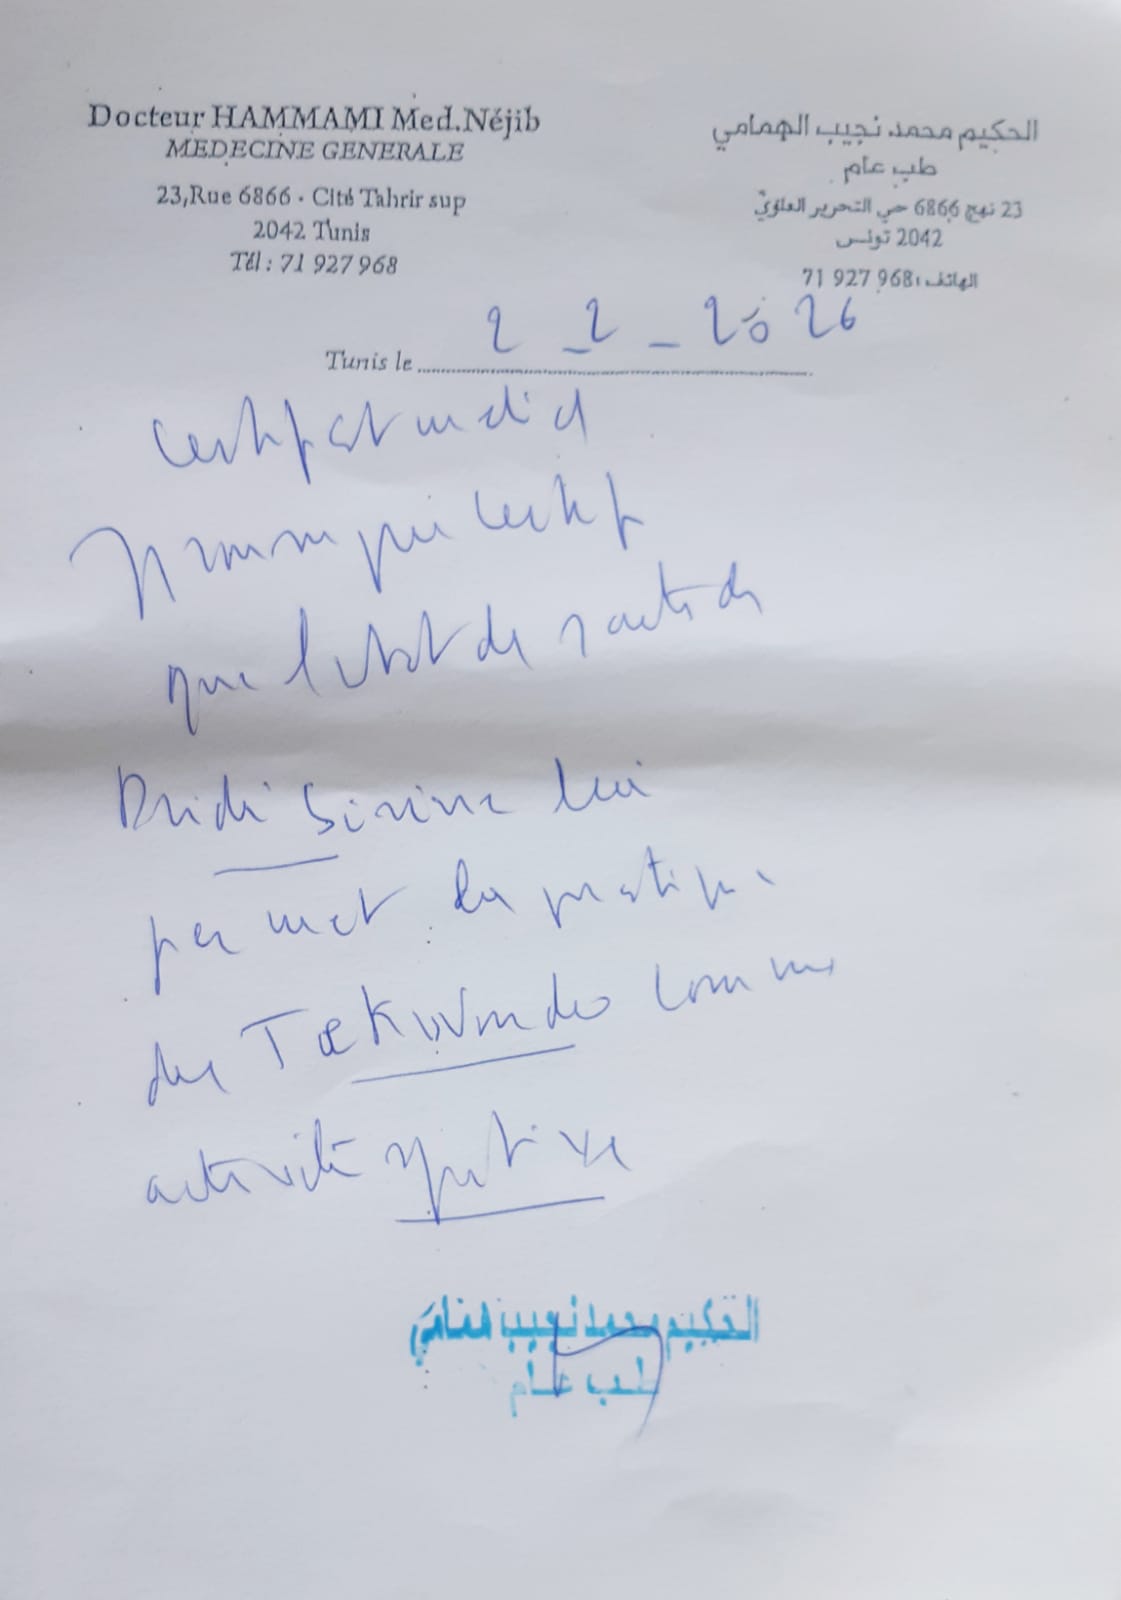 Docteur HAMMAMI Med.Néjib
MEDECINE GENERALE
23,Rue 6866 - Cité Tahrir sup
2042 Tunis
Tél : 71 927 968
الحكيم محمد نجيب الهمامي
طب عام
23 نهج 6866 حي التحرير العلوي
2042 تونس
الهاتف : 71 927 968
Tunis le 2 - 2 - 2026
Certificat medical
certifie
que l'état de santé de
Dridi Sirine lui
permet la pratique
du Taekwondo comme
activité sportive
الحكيم محمد نجيب همامي
طب عام